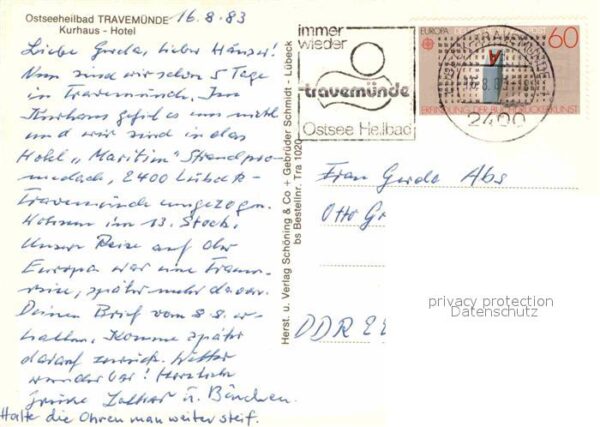 Ostseeheilbad TRAVEMÜNDE
Kurhaus - Hotel
16.8.83
Liebe Gerda, lieber Hänser!
Nun sind wir schon 5 Tage
in Travemünde. Im
Kurhaus gefiel es uns nicht
und wir sind in das
Hotel „Maritim" Strandpro-
menade, 2400 Lübeck-
Travemünde umgezogen.
Wohnen im 13. Stock.
Unsere Reise auf der
Europa war eine Traum-
reise, später mehr davon.
Deinen Brief vom 8.8. er-
halten. Komme später
darauf zurück. Wetter
wunderbar! Herzliche
Grüsse Lothar u.
Halte die Ohren man weiter steif.
Herst. u. Verlag Schöning & Co + Gebrüder Schmidt - Lübeck
bs Bestellnr. Tra 1020
immer
wieder
travemünde
Ostsee Heilbad
EUROPA
60
ERFINDUNG DER BUCHDRUCKERKUNST
TRAVEMÜNDE
2400
Frau Gerda Abs
Otto Gr
DDR 22
privacy protection
Datenschutz